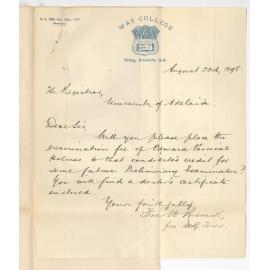 WAY COLLEGE
Unley, Adelaide, S.A.
August 23rd, 1898
The Registrar,
University of Adelaide.
Dear Sir,
Will you please place the
examination fee of Edward Percival
Holmes to that candidate's credit for
some future Preliminary Examination?
You will find a doctor's certificate
enclosed.
Yours faithfully